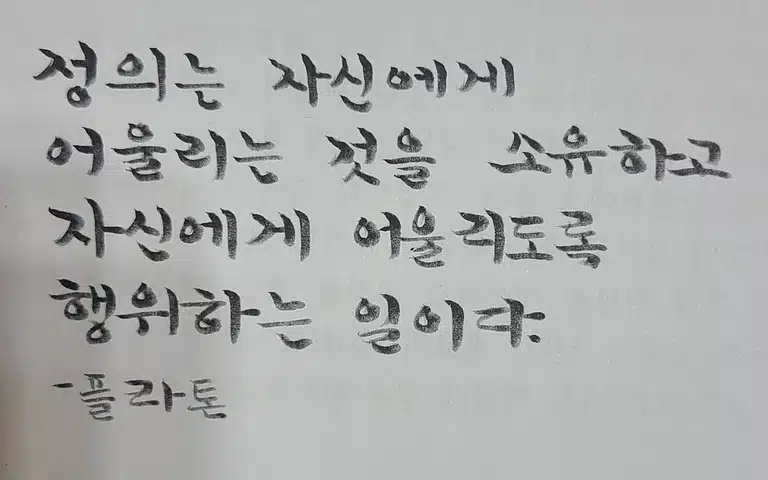 정의는 자신에게
어울리는 것을 소유하고
자신에게 어울리도록
행위하는 일이다.
-플라톤